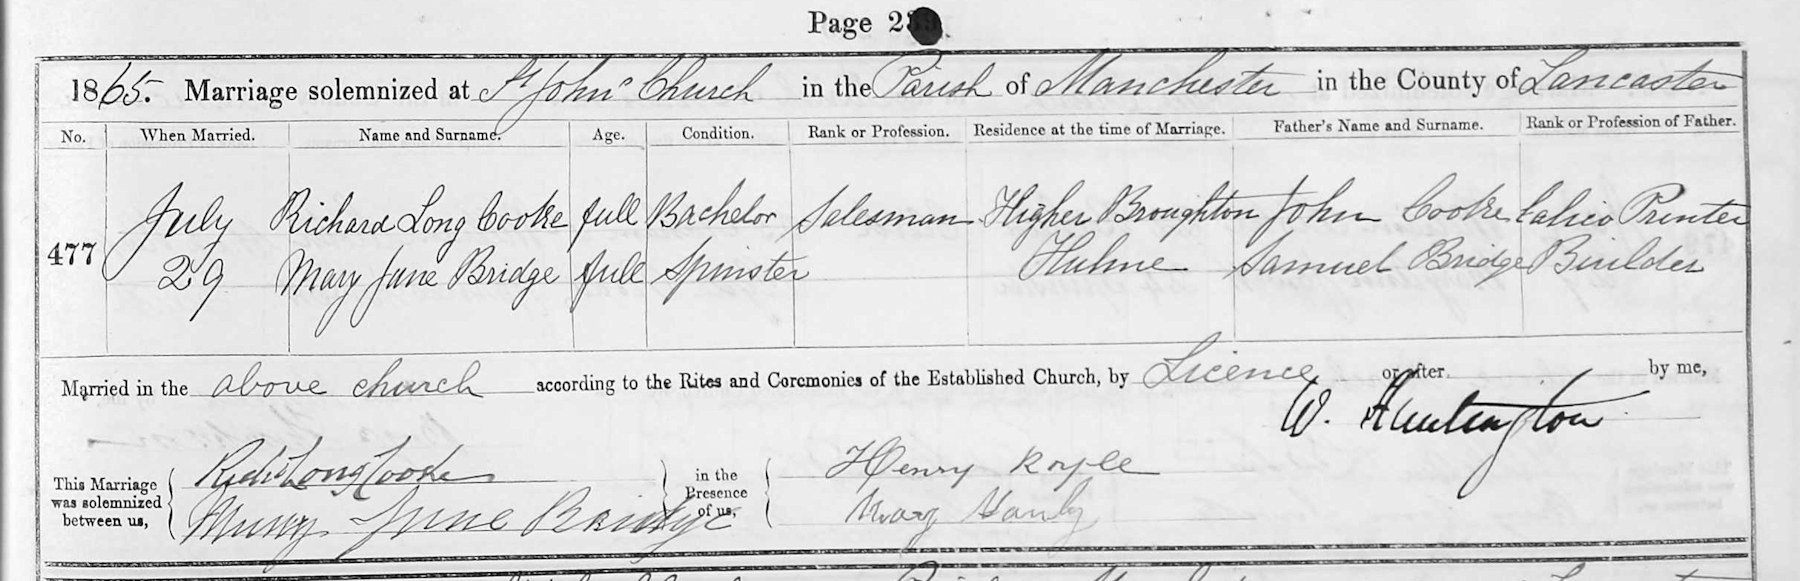 Page 2
1865. Marriage solemnized at St John's Church in the Parish of Manchester in the County of Lancaster
No. When Married. Name and Surname. Age. Condition. Rank or Profession. Residence at the time of Marriage. Father's Name and Surname. Rank or Profession of Father.
July Richard Long Cooke full Bachelor Salesman Higher Broughton John Cooke Calico Printer
477
29 Mary Jane Bridge full Spinster Hulme Samuel Bridge Builder
Married in the above church according to the Rites and Ceremonies of the Established Church, by Licence or after by me,
W. Huntington
This Marriage was solemnized between us, Richd Long Cooke in the Presence of us, Henry Royle
Mary Jane Bridge Mary